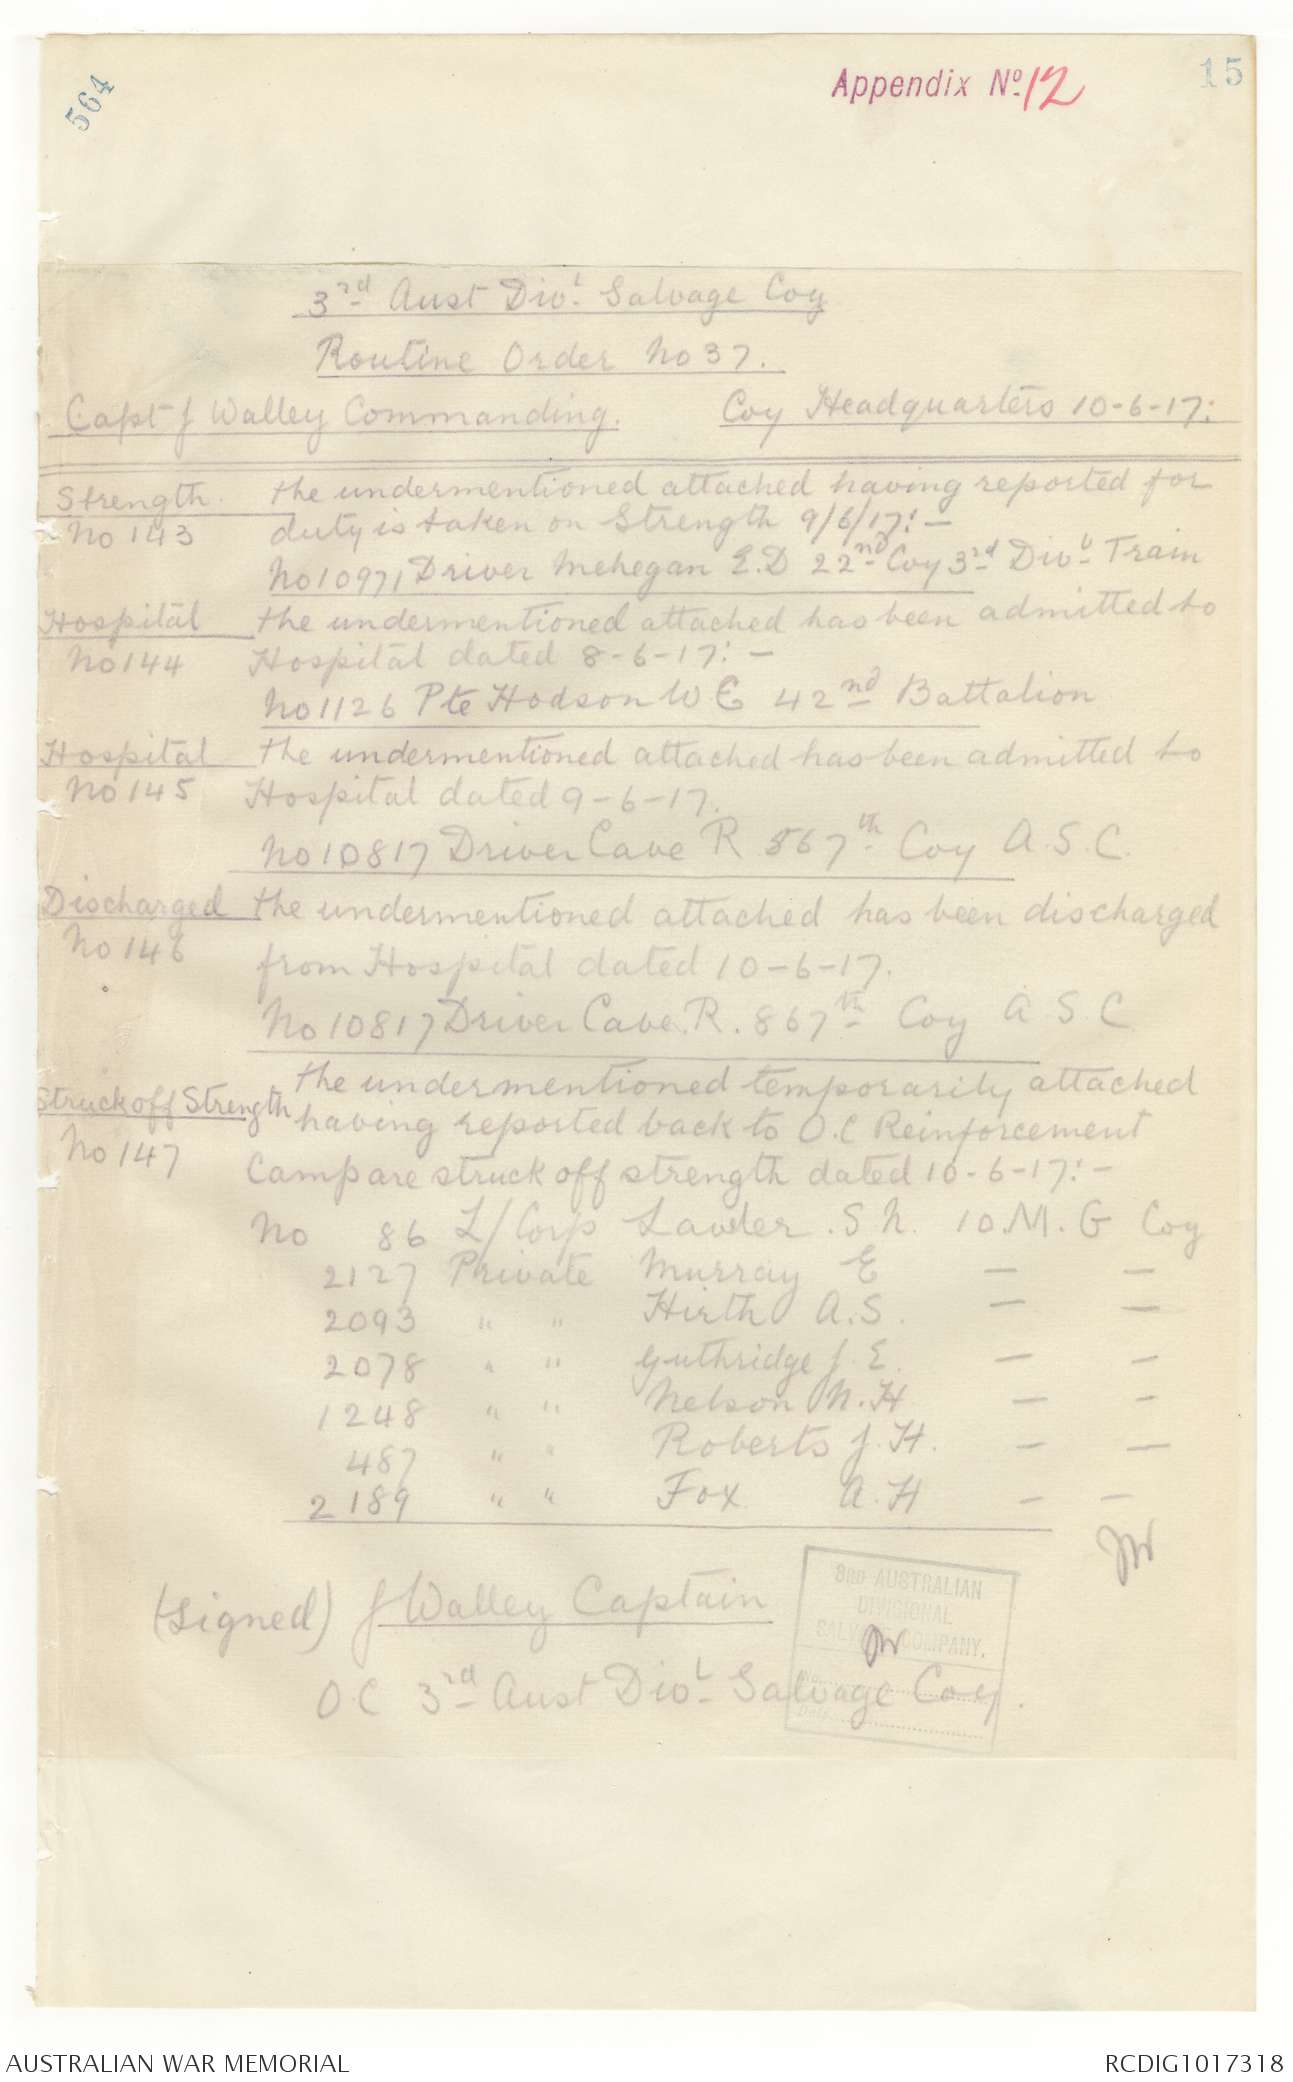 564
Appendix No. 12
15
3rd Aust Divl. Salvage Coy
Routine Order No 37.
Capt J Walley Commanding. Coy Headquarters 10-6-17:
Strength. The undermentioned attached having reported for
No 143 duty is taken on Strength 9/6/17:-
No 10971 Driver Mehegan E.D 22nd Coy 3rd Divl Train
Hospital The undermentioned attached has been admitted to
No 144 Hospital dated 8-6-17:-
No 1126 Pte Hodson W E 42nd Battalion
Hospital The undermentioned attached has been admitted to
No 145 Hospital dated 9-6-17.
No 10817 Driver Cave R 867th Coy A.S.C.
Discharged The undermentioned attached has been discharged
No 146 from Hospital dated 10-6-17.
No 10817 Driver Cave. R. 867th Coy A S C
Struck off Strength The undermentioned temporarily attached
No 147 having reported back to O.C Reinforcement
Camp are struck off strength dated 10-6-17:-
No 86 L/Corp Lawder. S N. 10. M. G Coy
2127 Private Murray E — —
2093 " " Hirth A.S. — —
2078 " " Guthridge J. E. — —
1248 " " Nelson N. H — —
487 " " Roberts J. H. — —
2189 " " Fox A. H — —
JW
(Signed) J Walley Captain
3RD AUSTRALIAN
DIVISIONAL
SALVAGE COMPANY.
JW
No.
Date
OC 3rd Aust Divl Salvage Coy.
AUSTRALIAN WAR MEMORIAL RCDIG1017318